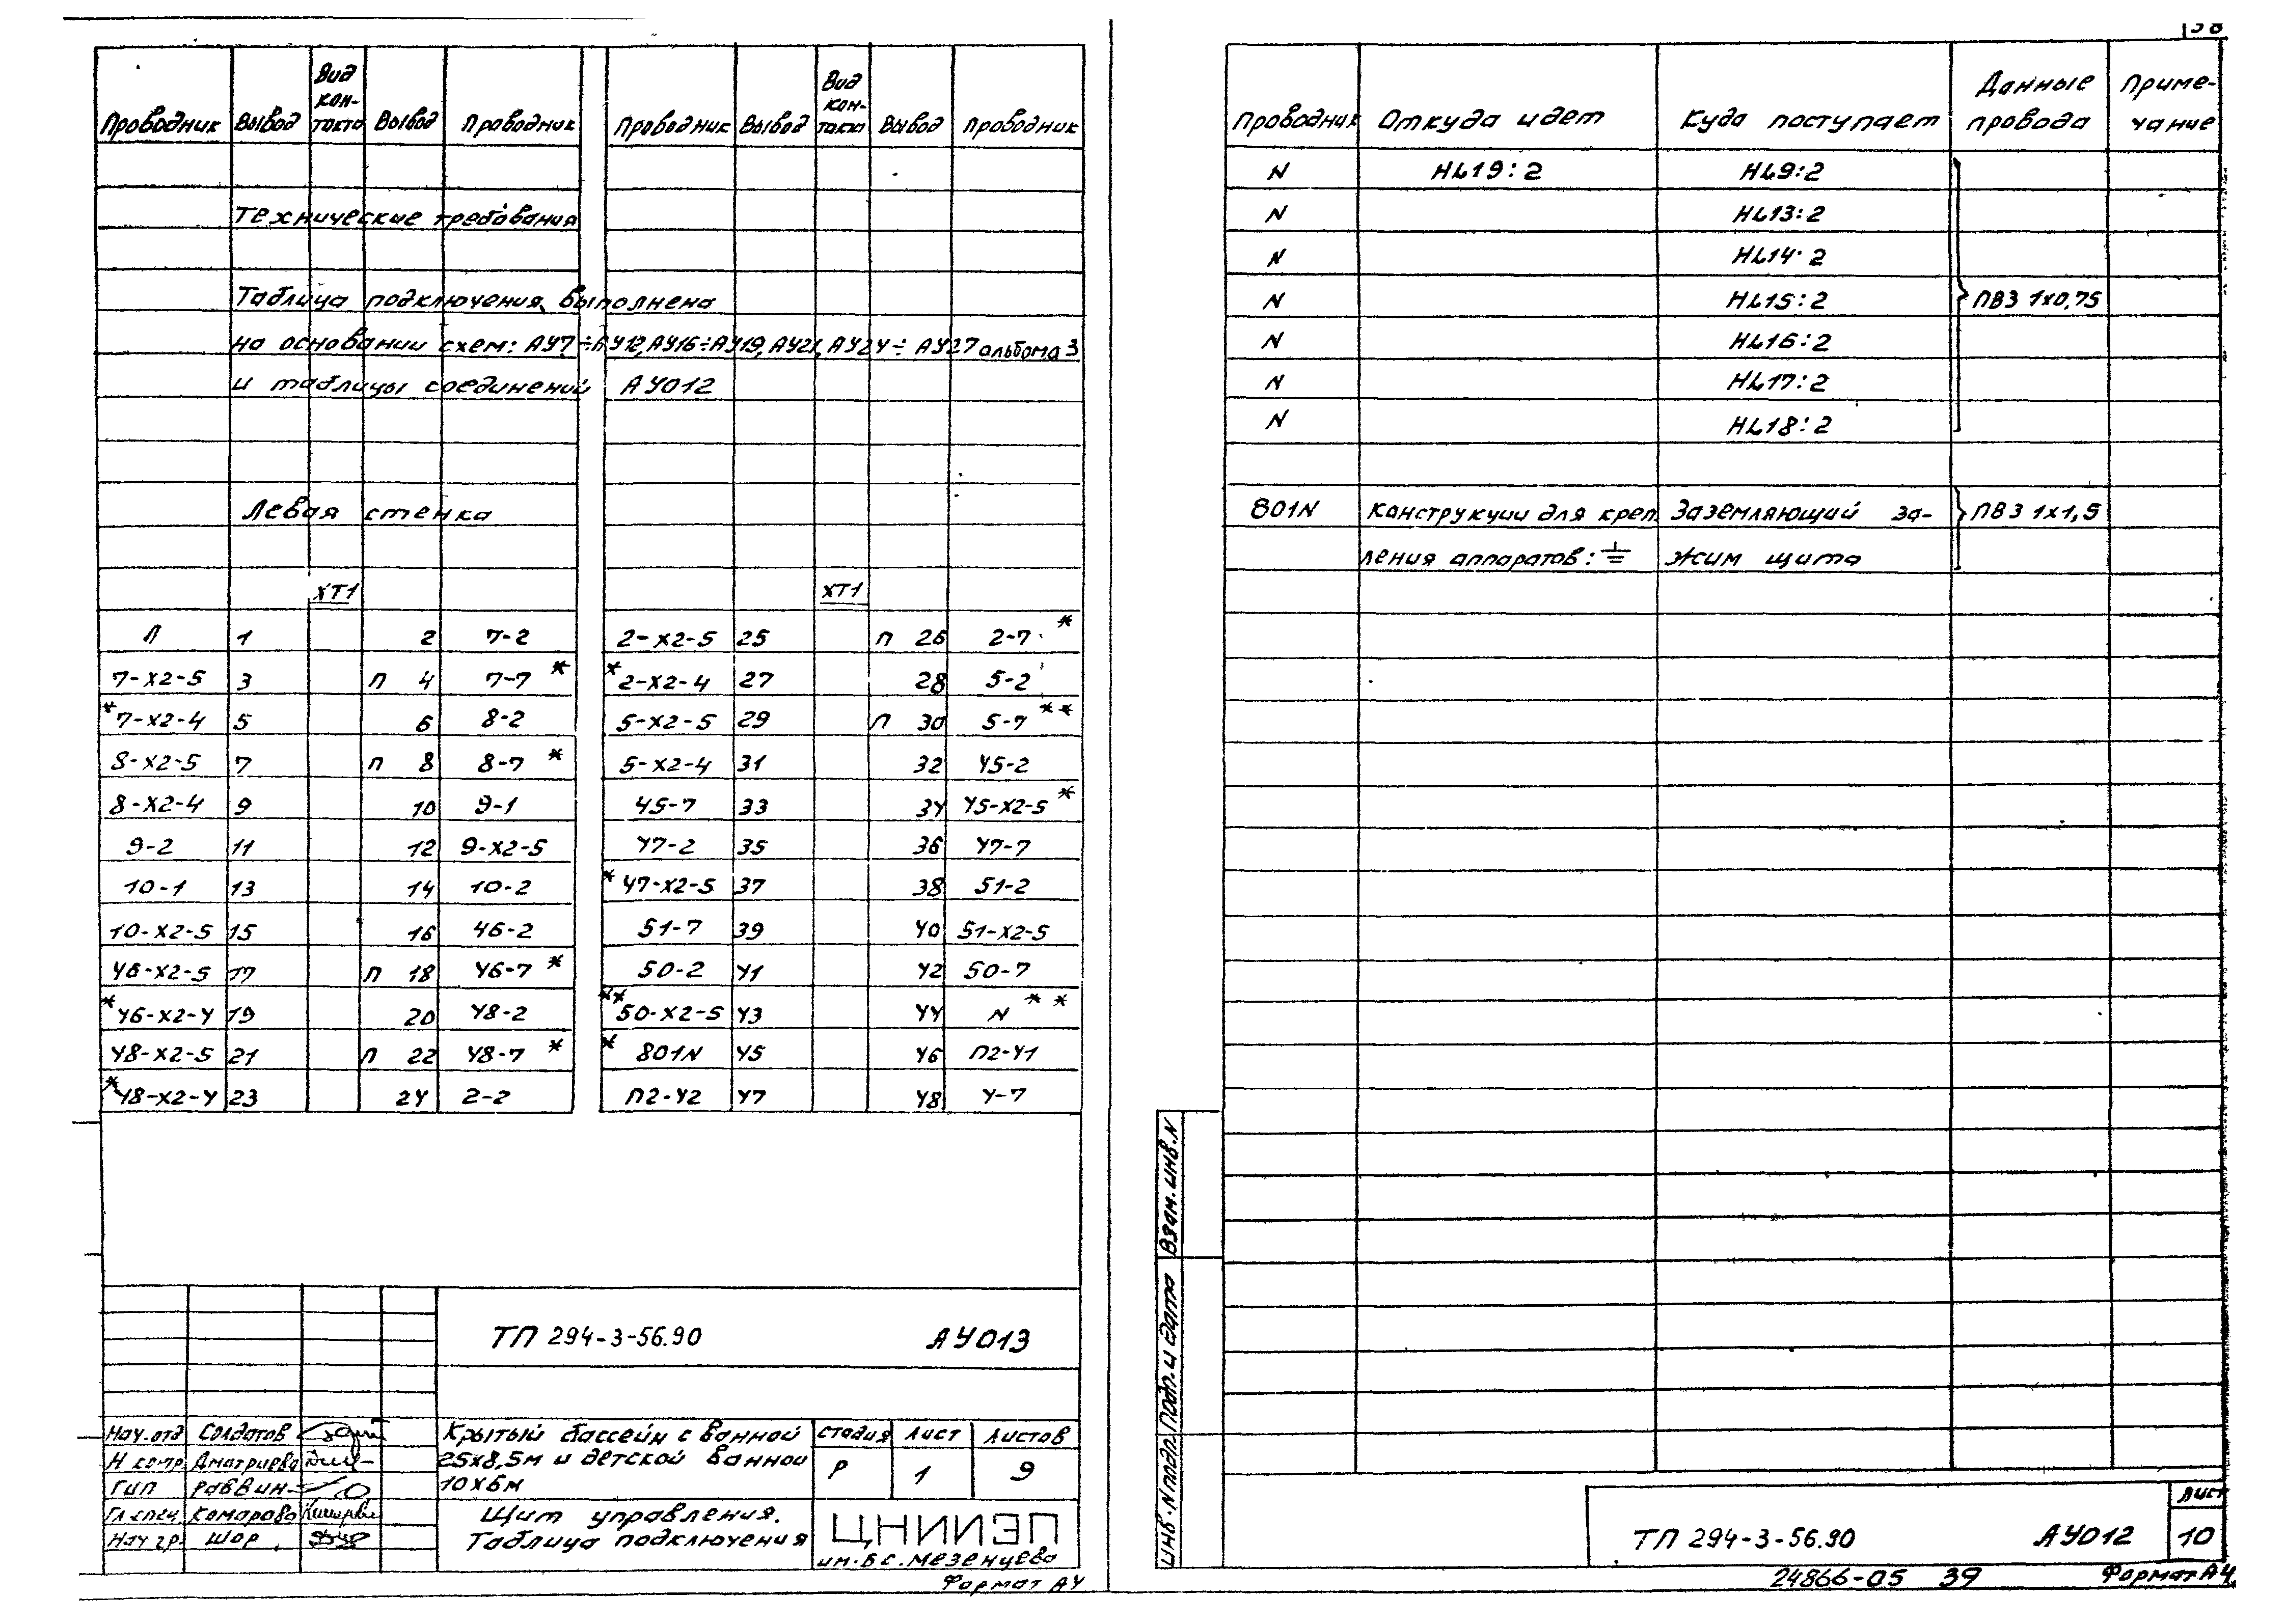 Проводник Вывод Вид контакта Вывод Проводник Проводник Вывод Вид контакта Вывод Проводник
Технические требования
Таблица подключения выполнена
на основании схем: АУ7÷АУ12, АУ16÷АУ19, АУ21, АУ24÷АУ27 альбома 3
и таблицы соединений АУ012
Левая стенка
ХТ1 ХТ1
Л 1 2 7-2 2-Х2-5 25 П 26 2-7 *
7-Х2-5 3 П 4 7-7 * *2-Х2-4 27 28 5-2
*7-Х2-4 5 6 8-2 5-Х2-5 29 П 30 5-7 **
8-Х2-5 7 П 8 8-7 * 5-Х2-4 31 32 45-2
8-Х2-4 9 10 9-1 45-7 33 34 45-Х2-5 *
9-2 11 12 9-Х2-5 47-2 35 36 47-7
10-1 13 14 10-2 *47-Х2-5 37 38 51-2
10-Х2-5 15 16 46-2 51-7 39 40 51-Х2-5
46-Х2-5 17 П 18 46-7 * 50-2 41 42 50-7
*46-Х2-4 19 20 48-2 **50-Х2-5 43 44 N **
48-Х2-5 21 П 22 48-7 * *801N 45 46 П2-41
*48-Х2-4 23 24 2-2 П2-42 47 48 4-7
ТП 294-3-56.90 АУ013
Нач.отд Солдатов
Н контр Дмитриева
ГИП Раввин
Гл.спец. Комарова
Нач гр. Шор
Крытый бассейн с ванной
25х8,5м и детской ванной
10х6м
Стадия Лист Листов
Р 1 9
Щит управления.
Таблица подключения
ЦНИИЭП
им. Б.С. Мезенцева
Формат А4
138
Проводник Откуда идет Куда поступает Данные провода Примечание
N HL19:2 HL9:2
N HL13:2
N HL14:2
N HL15:2 ПВ3 1х0,75
N HL16:2
N HL17:2
N HL18:2
801N Конструкции для креп Заземляющий за- ПВ3 1х1,5
ления аппаратов: ⏚ жим щита
Взам.инв.N
Подп. и дата
Инв.N подл.
ТП 294-3-56.90 АУ012
Лист
10
24866-05 39 Формат А4